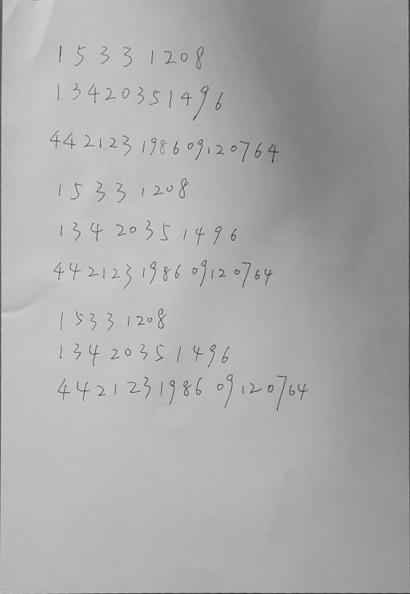 15331208
13420351496
442123198609120764
15331208
13420351496
442123198609120764
15331208
13420351496
442123198609120764